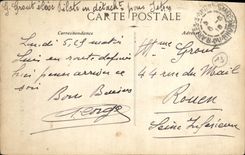 G. Grout élève Pilote en détacht pour Istres
CARTE POSTALE
Correspondance
Lundi 5. 19 matin
suis en route depuis
hier pense arriver ce
soir
Bons Baisers
George
Mme Grout
44 rue du Mail
Rouen
Seine Inférieure